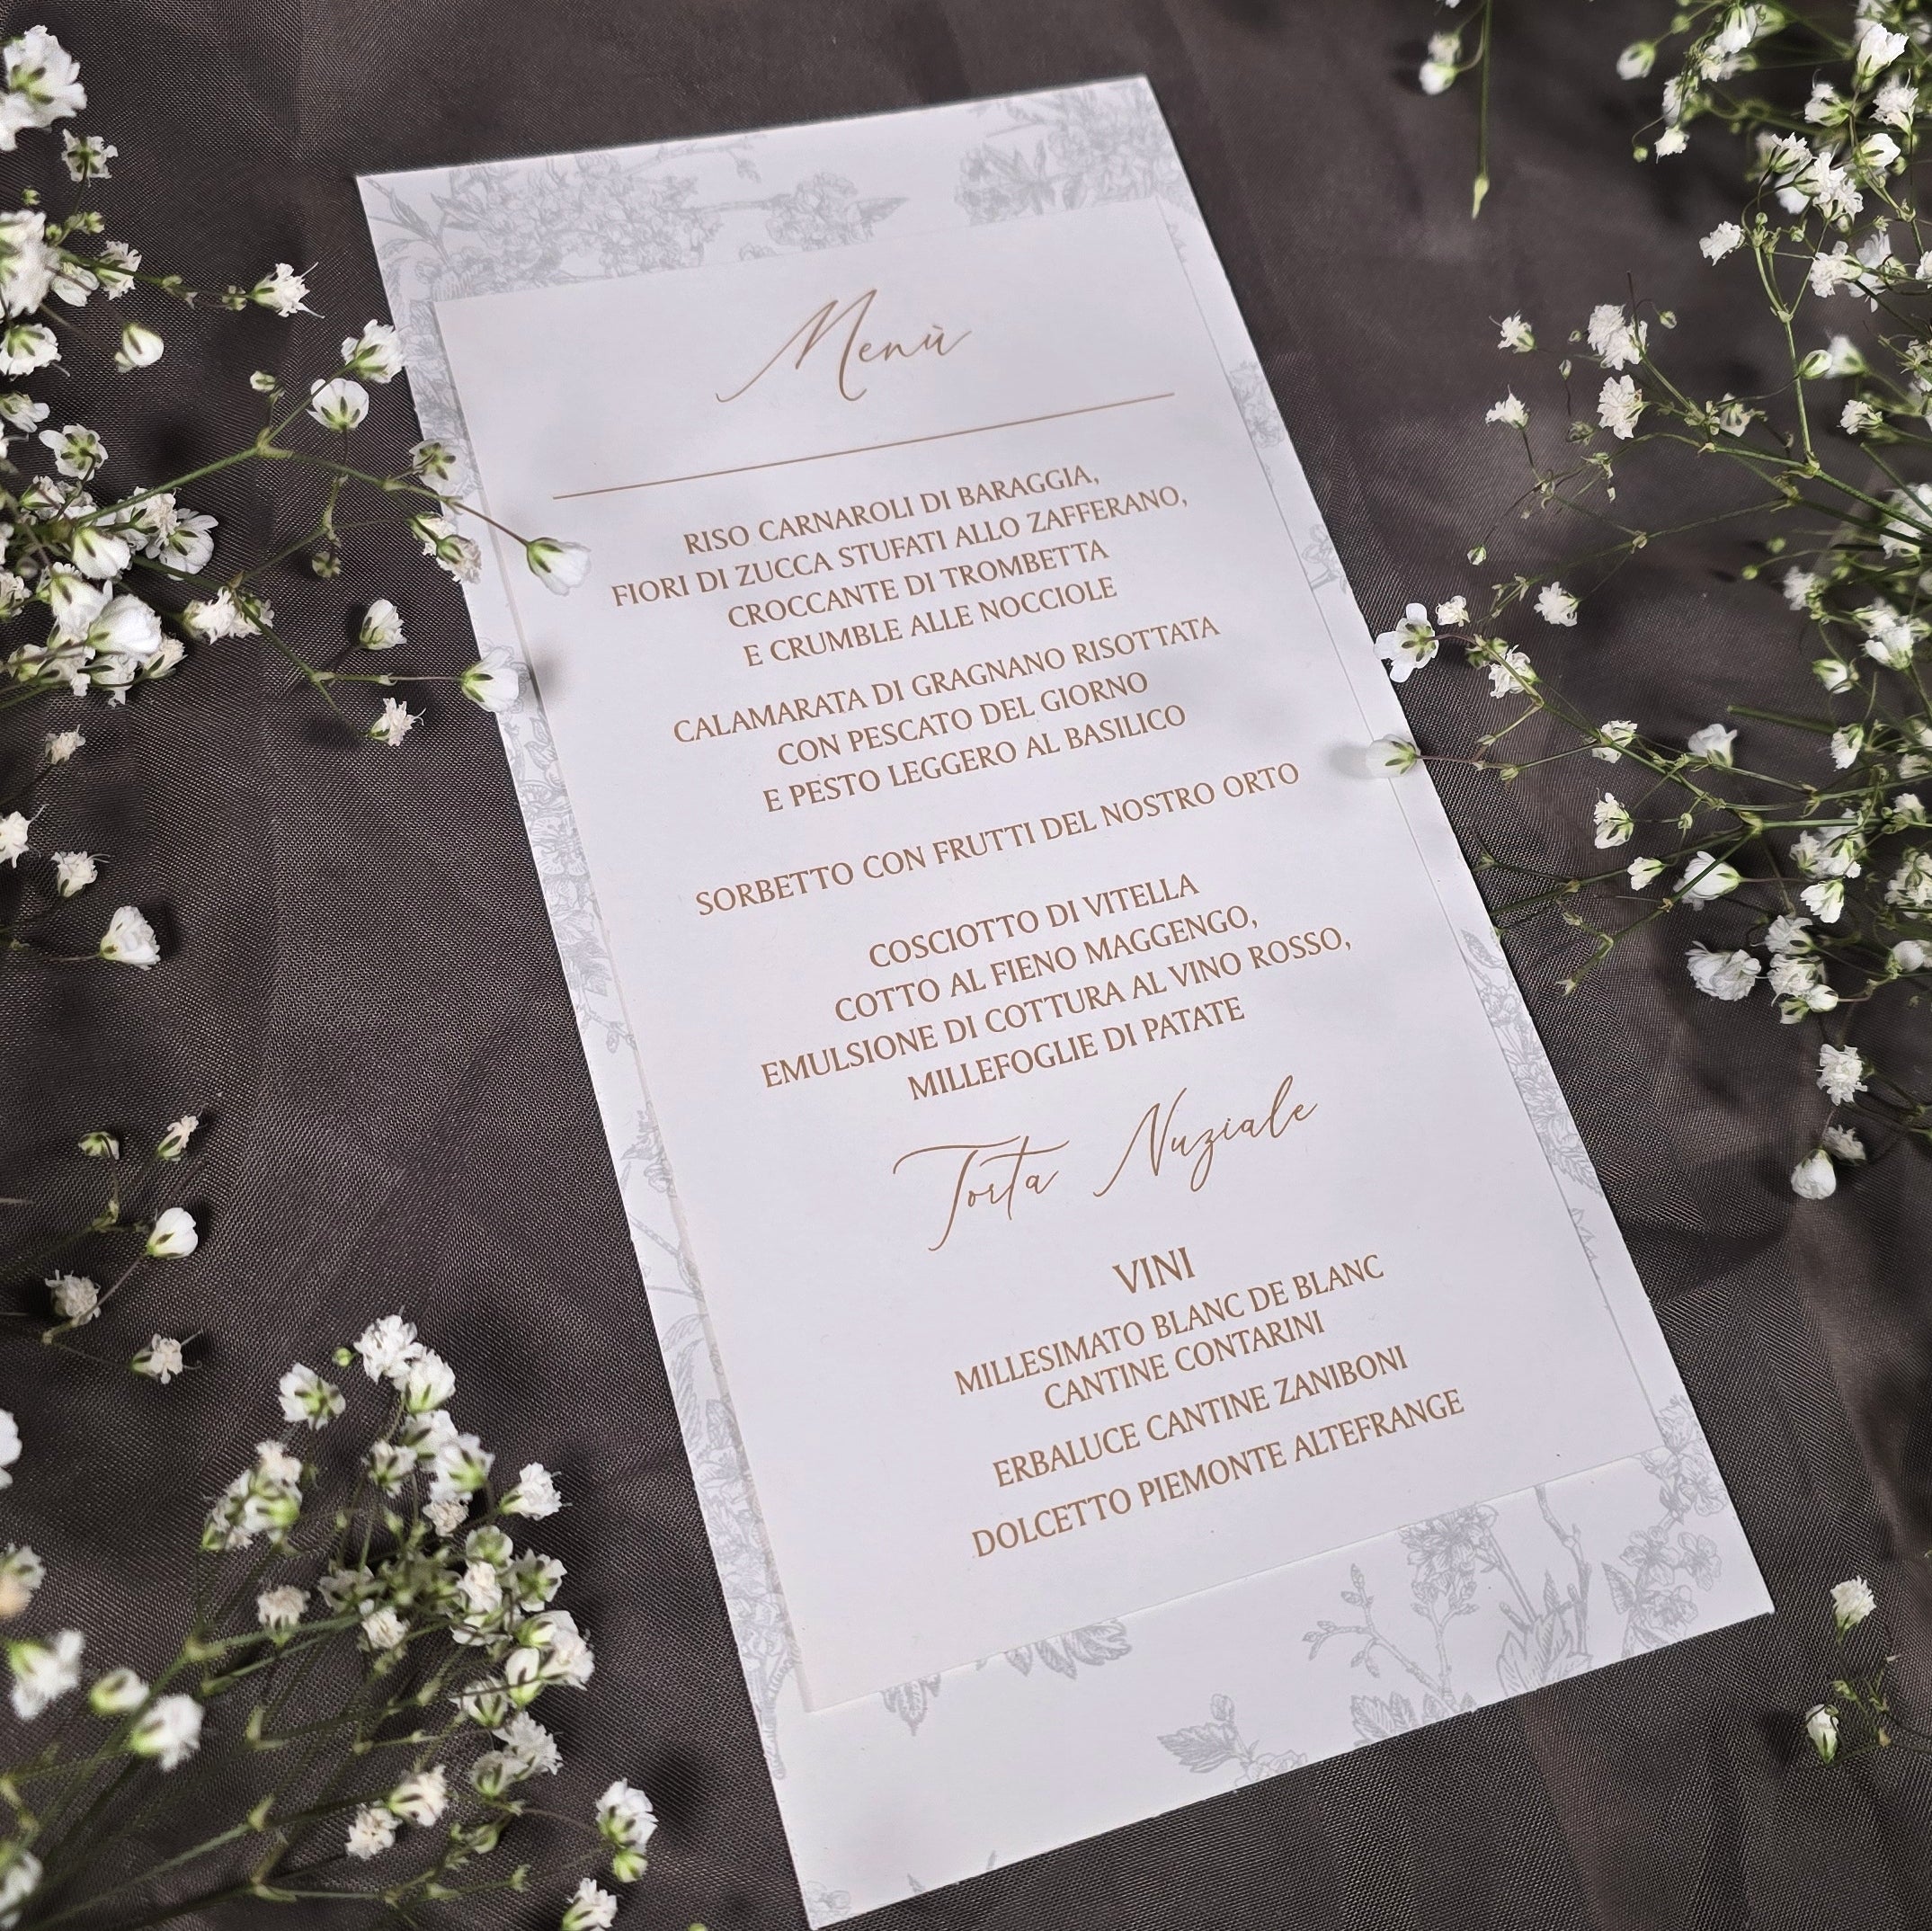 Menù
RISO CARNAROLI DI BARAGGIA,
FIORI DI ZUCCA STUFATI ALLO ZAFFERANO,
CROCCANTE DI TROMBETTA
E CRUMBLE ALLE NOCCIOLE
CALAMARATA DI GRAGNANO RISOTTATA
CON PESCATO DEL GIORNO
E PESTO LEGGERO AL BASILICO
SORBETTO CON FRUTTI DEL NOSTRO ORTO
COSCIOTTO DI VITELLA
COTTO AL FIENO MAGGENGO,
EMULSIONE DI COTTURA AL VINO ROSSO,
MILLEFOGLIE DI PATATE
Torta Nuziale
VINI
MILLESIMATO BLANC DE BLANC
CANTINE CONTARINI
ERBALUCE CANTINE ZANIBONI
DOLCETTO PIEMONTE ALTEFRANGE